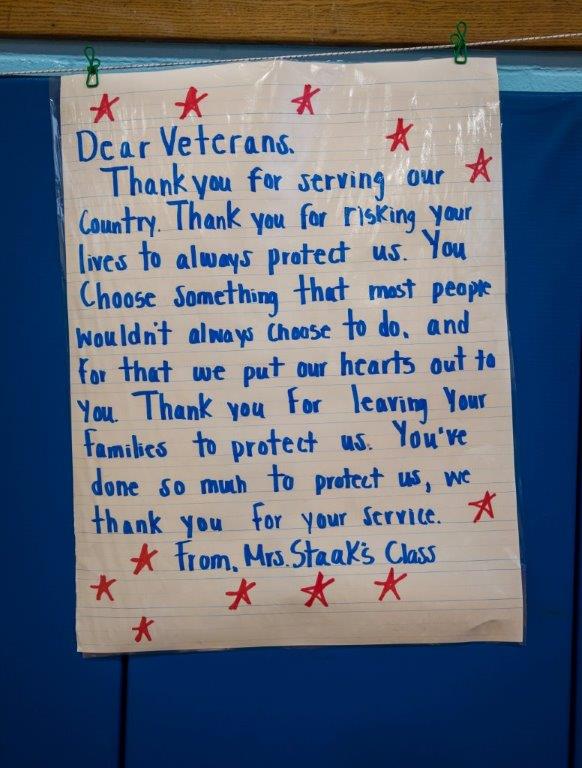 Dear Veterans.
Thank you for serving our
Country. Thank you for risking your
lives to always protect us. You
Choose something that most people
wouldn't always choose to do. and
for that we put our hearts out to
you. Thank you for leaving Your
families to protect us. You've
done so much to protect us, we
thank you for your service.
From, Mrs. Staak's Class